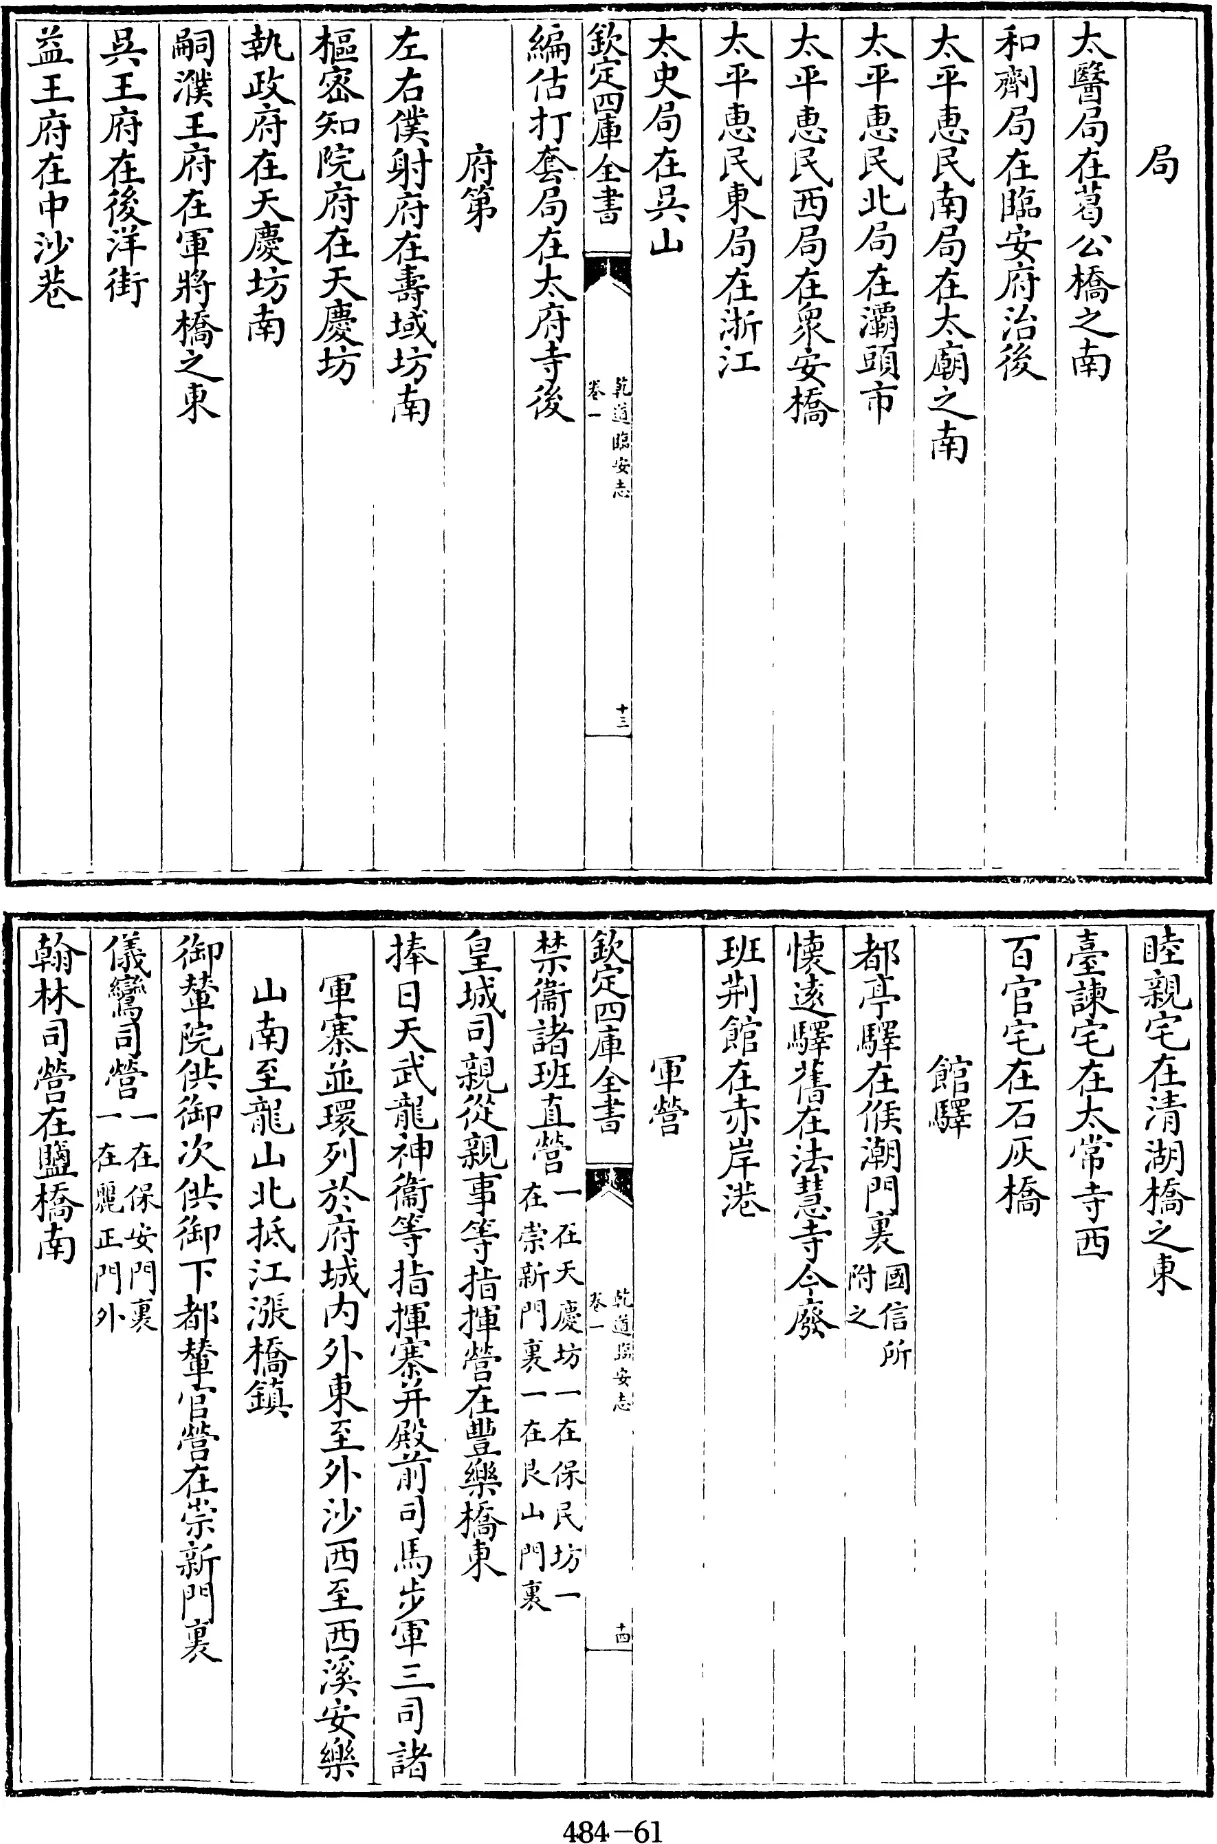 局
太醫局在葛公橋之南
和劑局在臨安府治後
太平惠民南局在太廟之南
太平惠民北局在灞頭市
太平惠民西局在衆安橋
太平惠民東局在浙江
太史局在吳山
欽定四庫全書
乾道臨安志
卷一
十三
編估打套局在太府寺後
府第
左右僕射府在壽域坊南
樞密知院府在天慶坊
執政府在天慶坊南
嗣濮王府在軍將橋之東
吳王府在後洋街
益王府在中沙巷
睦親宅在清湖橋之東
臺諫宅在太常寺西
百官宅在石灰橋
館驛
都亭驛在候潮門裏國信所附之
懷遠驛舊在法慧寺今廢
班荆館在赤岸港
軍營
欽定四庫全書
乾道臨安志
卷一
十四
禁衞諸班直營一在天慶坊一在保民坊一在崇新門裏一在艮山門裏
皇城司親從親事等指揮營在豐樂橋東
捧日天武龍神衞等指揮寨并殿前司馬步軍三司諸
軍寨並環列於府城内外東至外沙西至西溪安樂
山南至龍山北抵江漲橋鎮
御輦院供御次供御下都輦官營在崇新門裏
儀鸞司營一在保安門裏一在麗正門外
翰林司營在鹽橋南
484-61